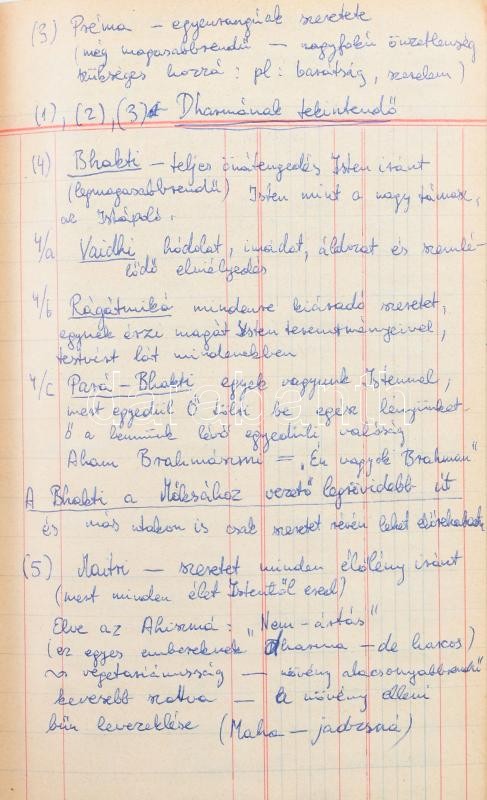 (3) Préma – egyenrangúak szeretete
(még magasabbrendű – nagyfokú önzetlenség
szükséges hozzá: pl: barátság, szerelem)
(1), (2), (3) Dharmának tekintendő
(4) Bhakti – teljes önátengedés Isten iránt
(legmagasabbrendű) Isten mint a nagy támasz,
az Istápoló.
4/a Vaidhi hódolat, imádat, áldozat és szemlé-
lődő elmélyedés
4/b Rágátmiká mindenre kiáradó szeretet,
egynek érzi magát Isten teremtményeivel,
testvért lát mindenekben
4/c Pará-Bhakti egyek vagyunk Istennel,
mert egyedül Ő tölti be egész lényünket
Ő a bennünk lévő egyedüli valóság
Aham Brahmászmi = „Én vagyok Brahman"
A Bhakti a Móksához vezető legrövidebb út
és más utakon is csak szeretet révén lehet
(5) Maitri – szeretet minden élőlény iránt
(mert minden élet Istentől ered)
Elve az Ahiszmá: "Nem-ártás"
(ez egyes embereknek dharma – de harcos)
vegetariánusság – növény alacsonyabbrendű
kevesebb szattva – a növény elleni
bűn levezeklése (Maha – jadzsná)
darabanth